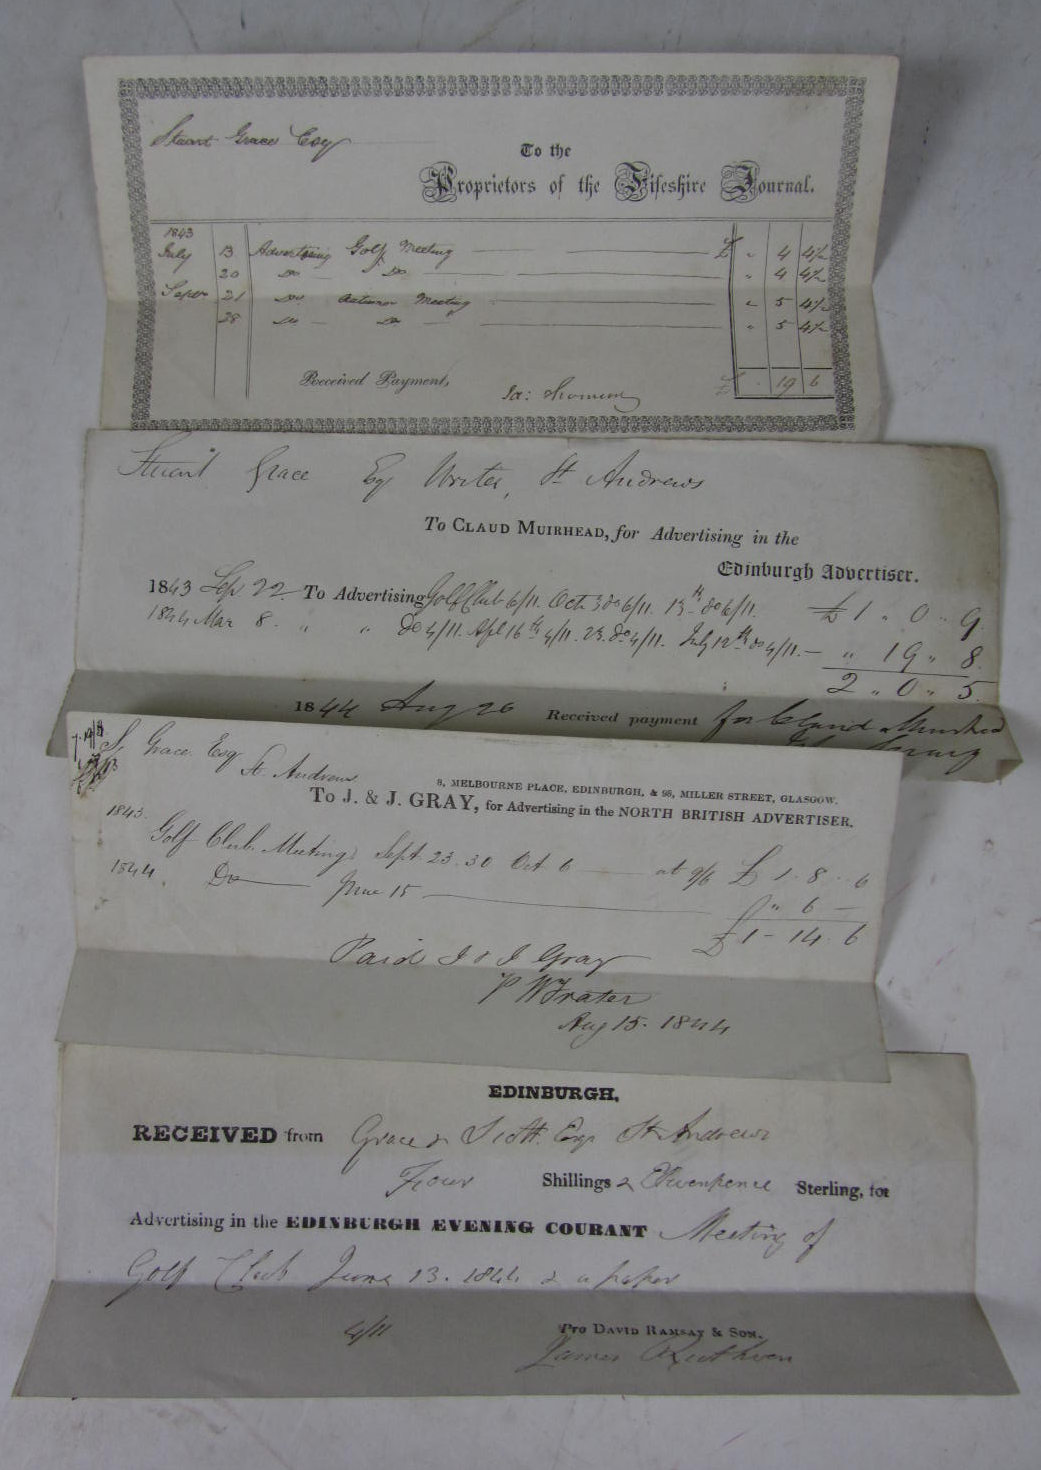 Stuart Grace Esq
To the
Proprietors of the Fifeshire Journal.
1843
July 13 Advertising Golf Meeting £ " 4 4½
20 Do Do " 4 4½
Septr 21 Do Autumn Meeting " 5 4½
28 Do Do " 5 4½
Received Payment, Ja: Thomson £ . 19 6
Stuart Grace Esq Writer, St Andrews
To CLAUD MUIRHEAD, for Advertising in the
Edinburgh Advertiser.
1843 Sep 22 To Advertising Golf Club 6/11. Oct 3 do 6/11. 13th do 6/11. £ 1 " 0 " 9
1844 Mar 8 " " do 4/11. Apl 16th 4/11. 23. do 4/11. July 12th do 4/11. — " 19 " 8
2 " 0 " 5
1844 Aug 26 Received payment for Claud Muirhead
S. Grace Esq
St. Andrews
8, MELBOURNE PLACE, EDINBURGH, & 98, MILLER STREET, GLASGOW.
To J. & J. GRAY, for Advertising in the NORTH BRITISH ADVERTISER.
1843.
Golf Club Meeting Sept. 23. 30 Oct 6 — at 9/6 £ 1 . 8 . 6
1844 Do — June 15 — " 6 —
£ 1 - 14 . 6
Paid J & J Gray
P W Frater
Aug 15. 1844
EDINBURGH,
RECEIVED from Grace & Scott. Esqs St Andrews
Four Shillings & Elevenpence Sterling, for
Advertising in the EDINBURGH EVENING COURANT Meeting of
Golf Club June 13. 1844 & a paper
4/11
Pro DAVID RAMSAY & SON.
James Ruthven